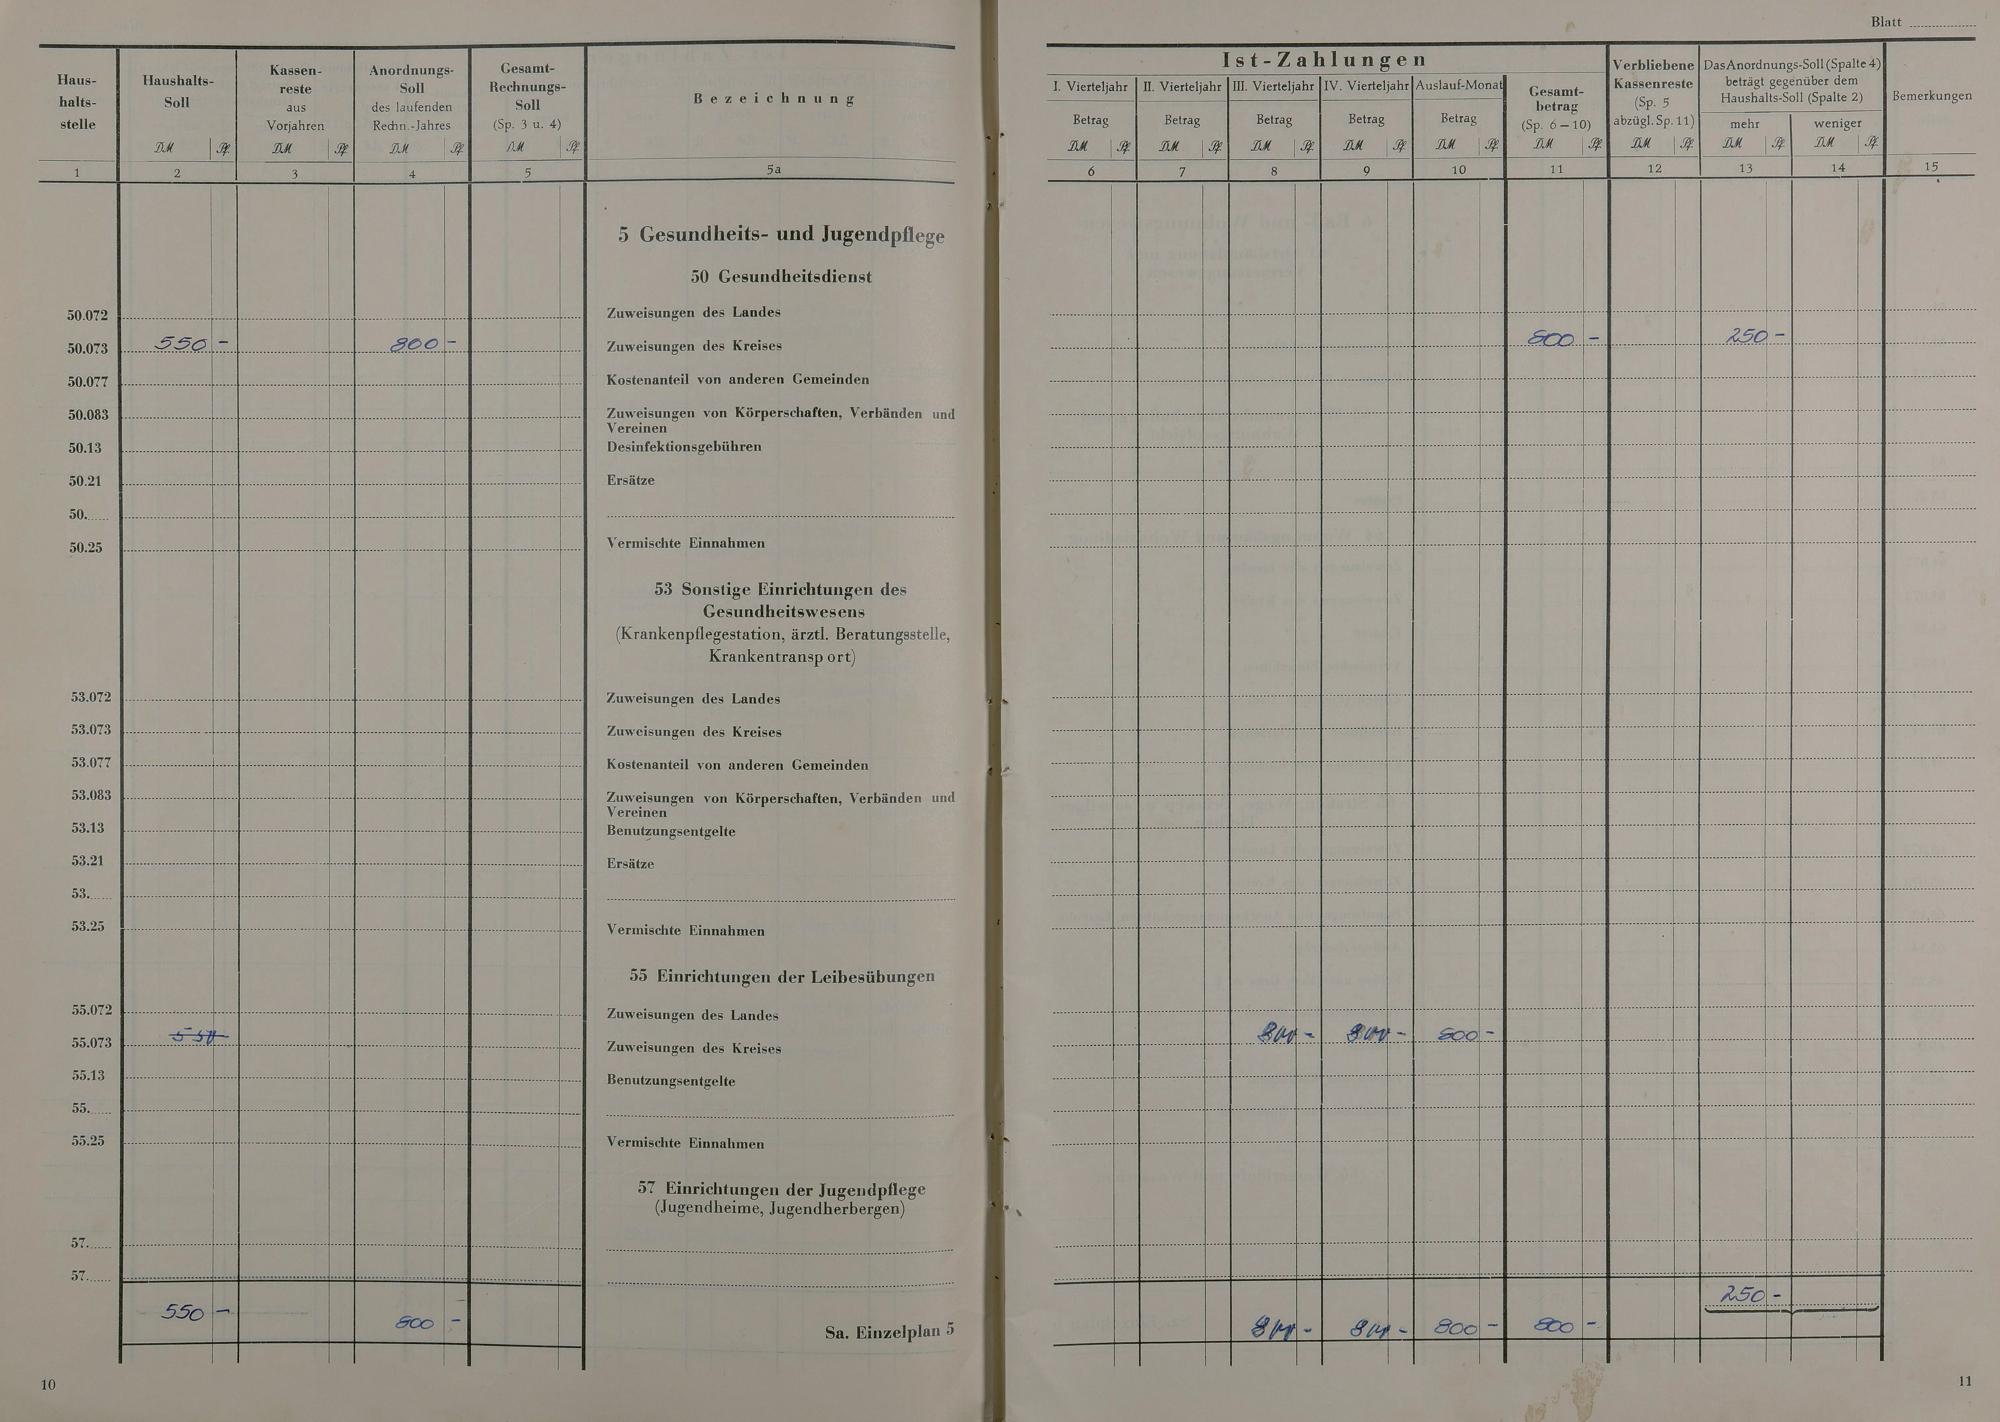 Blatt
Haus-
halts-
stelle
Haushalts-
Soll
DM Pf
Kassen-
reste
aus
Vorjahren
DM Pf
Anordnungs-
Soll
des laufenden
Rechn.-Jahres
DM Pf
Gesamt-
Rechnungs-
Soll
(Sp. 3 u. 4)
DM Pf
Bezeichnung
1 2 3 4 5 5a
5 Gesundheits- und Jugendpflege
50 Gesundheitsdienst
50.072 Zuweisungen des Landes
50.073 550 - 800 - Zuweisungen des Kreises
50.077 Kostenanteil von anderen Gemeinden
50.083 Zuweisungen von Körperschaften, Verbänden und
Vereinen
50.13 Desinfektionsgebühren
50.21 Ersätze
50.
50.25 Vermischte Einnahmen
53 Sonstige Einrichtungen des
Gesundheitswesens
(Krankenpflegestation, ärztl. Beratungsstelle,
Krankentransport)
53.072 Zuweisungen des Landes
53.073 Zuweisungen des Kreises
53.077 Kostenanteil von anderen Gemeinden
53.083 Zuweisungen von Körperschaften, Verbänden und
Vereinen
53.13 Benutzungsentgelte
53.21 Ersätze
53.
53.25 Vermischte Einnahmen
55 Einrichtungen der Leibesübungen
55.072 Zuweisungen des Landes
55.073 550 Zuweisungen des Kreises
55.13 Benutzungsentgelte
55.
55.25 Vermischte Einnahmen
57 Einrichtungen der Jugendpflege
(Jugendheime, Jugendherbergen)
57.
57.
550 - 800 - Sa. Einzelplan 5
10
Ist-Zahlungen
I. Vierteljahr
Betrag
DM Pf
II. Vierteljahr
Betrag
DM Pf
III. Vierteljahr
Betrag
DM Pf
IV. Vierteljahr
Betrag
DM Pf
Auslauf-Monat
Betrag
DM Pf
Gesamt-
betrag
(Sp. 6 – 10)
DM Pf
Verbliebene
Kassenreste
(Sp. 5
abzügl. Sp. 11)
DM Pf
Das Anordnungs-Soll (Spalte 4)
beträgt gegenüber dem
Haushalts-Soll (Spalte 2)
mehr weniger
DM Pf DM Pf
Bemerkungen
6 7 8 9 10 11 12 13 14 15
800 - 250 -
800 - 800 - 800 -
250 -
800 - 800 - 800 - 800 -
11